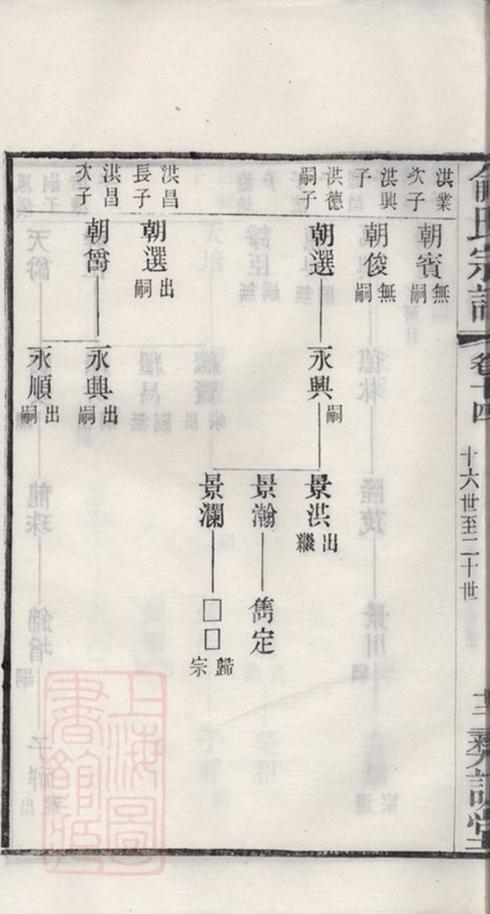 氏宗譜
卷十四
十六世至二十世
洪業
次子
朝賓
無
嗣
洪興
子
朝俊
無
嗣
洪德
嗣子
朝選
永興
嗣
景洪
出
繼
景瀚
雋定
景瀾
□□
歸
宗
洪昌
長子
朝選
出
嗣
洪昌
次子
朝爵
永興
出
嗣
永順
出
嗣
上海圖
書館藏